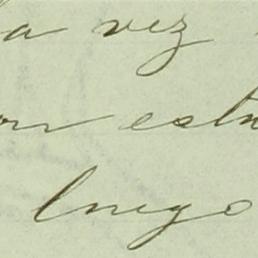 a vez
on estu
luego